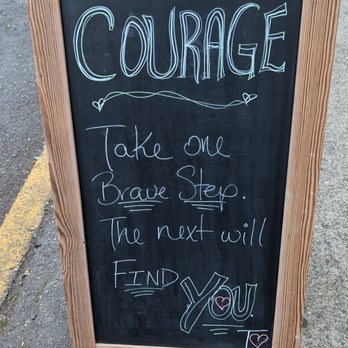 COURAGE
Take one
Brave Step.
The next will
FIND YOU.